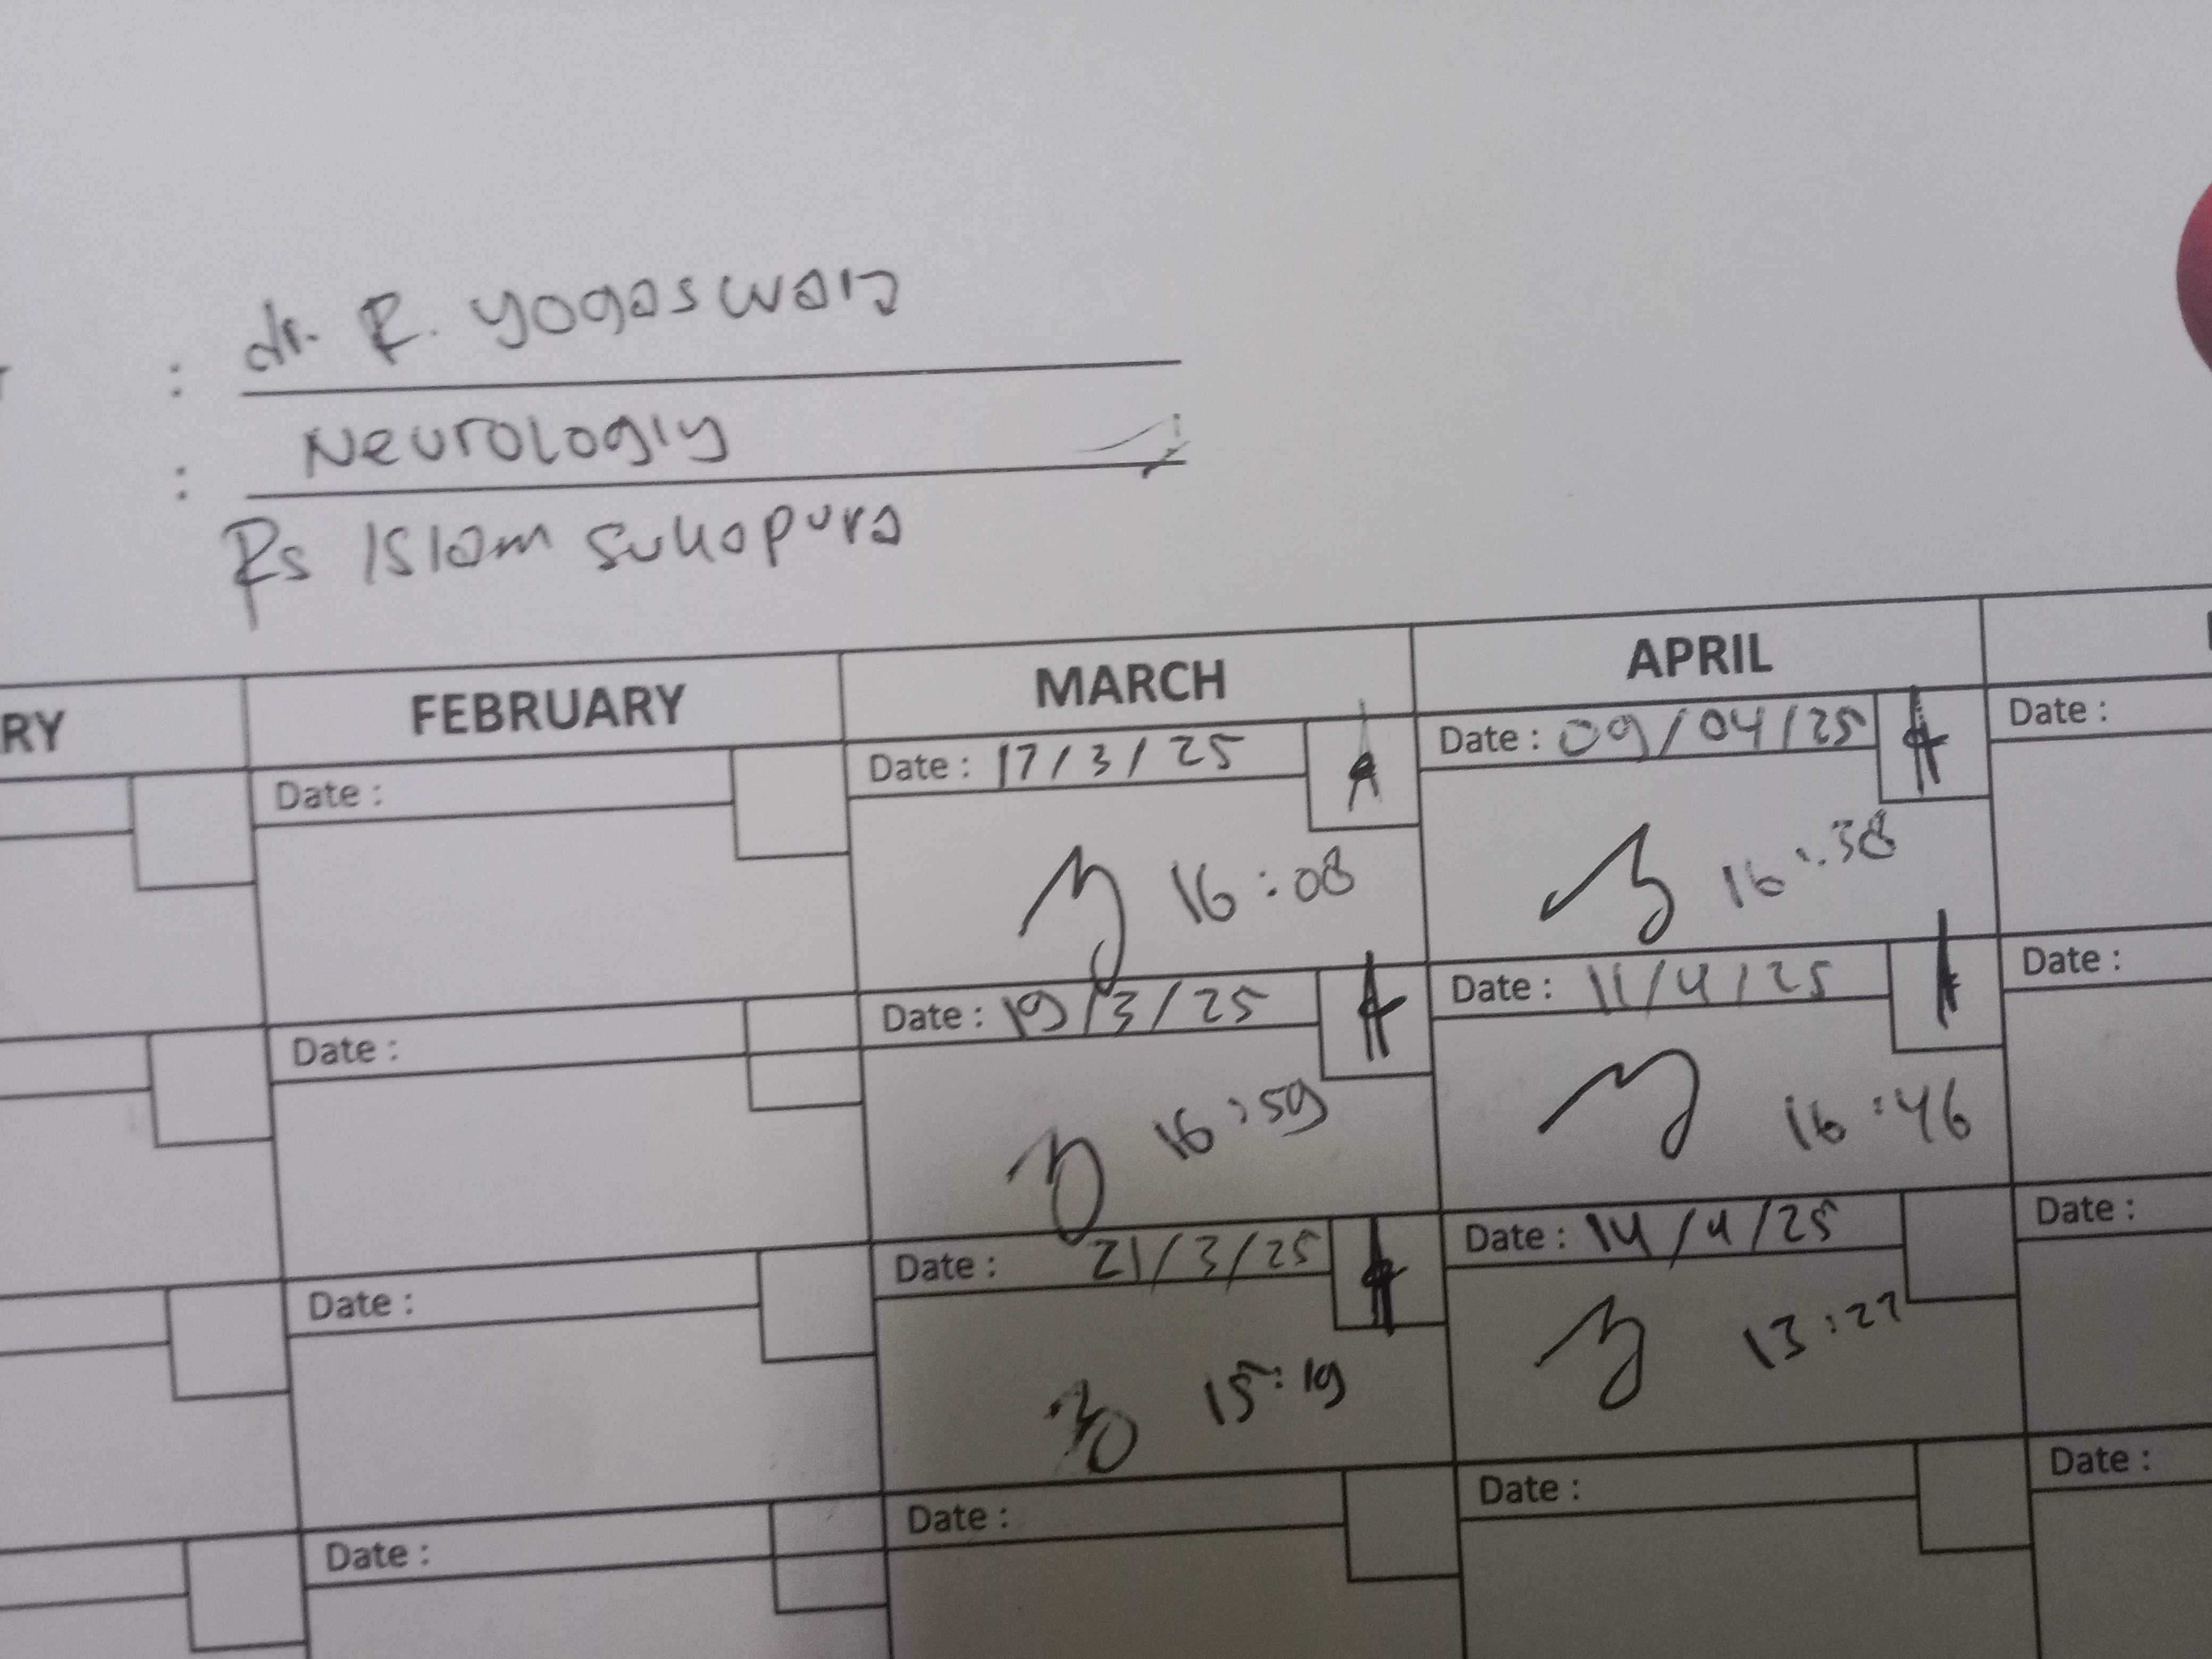 : dr. R. Yogaswara
: Neurologiy
Rs Islam Sukapura
RY FEBRUARY MARCH APRIL
Date : Date : 17/3/25 Date : 09/04/25 Date :
16:08 16:38
Date : Date : 19/3/25 Date : 11/4/25 Date :
16:59 16:46
Date : Date : 21/3/25 Date : 14/4/25 Date :
15:19 13:27
Date : Date : Date : Date :